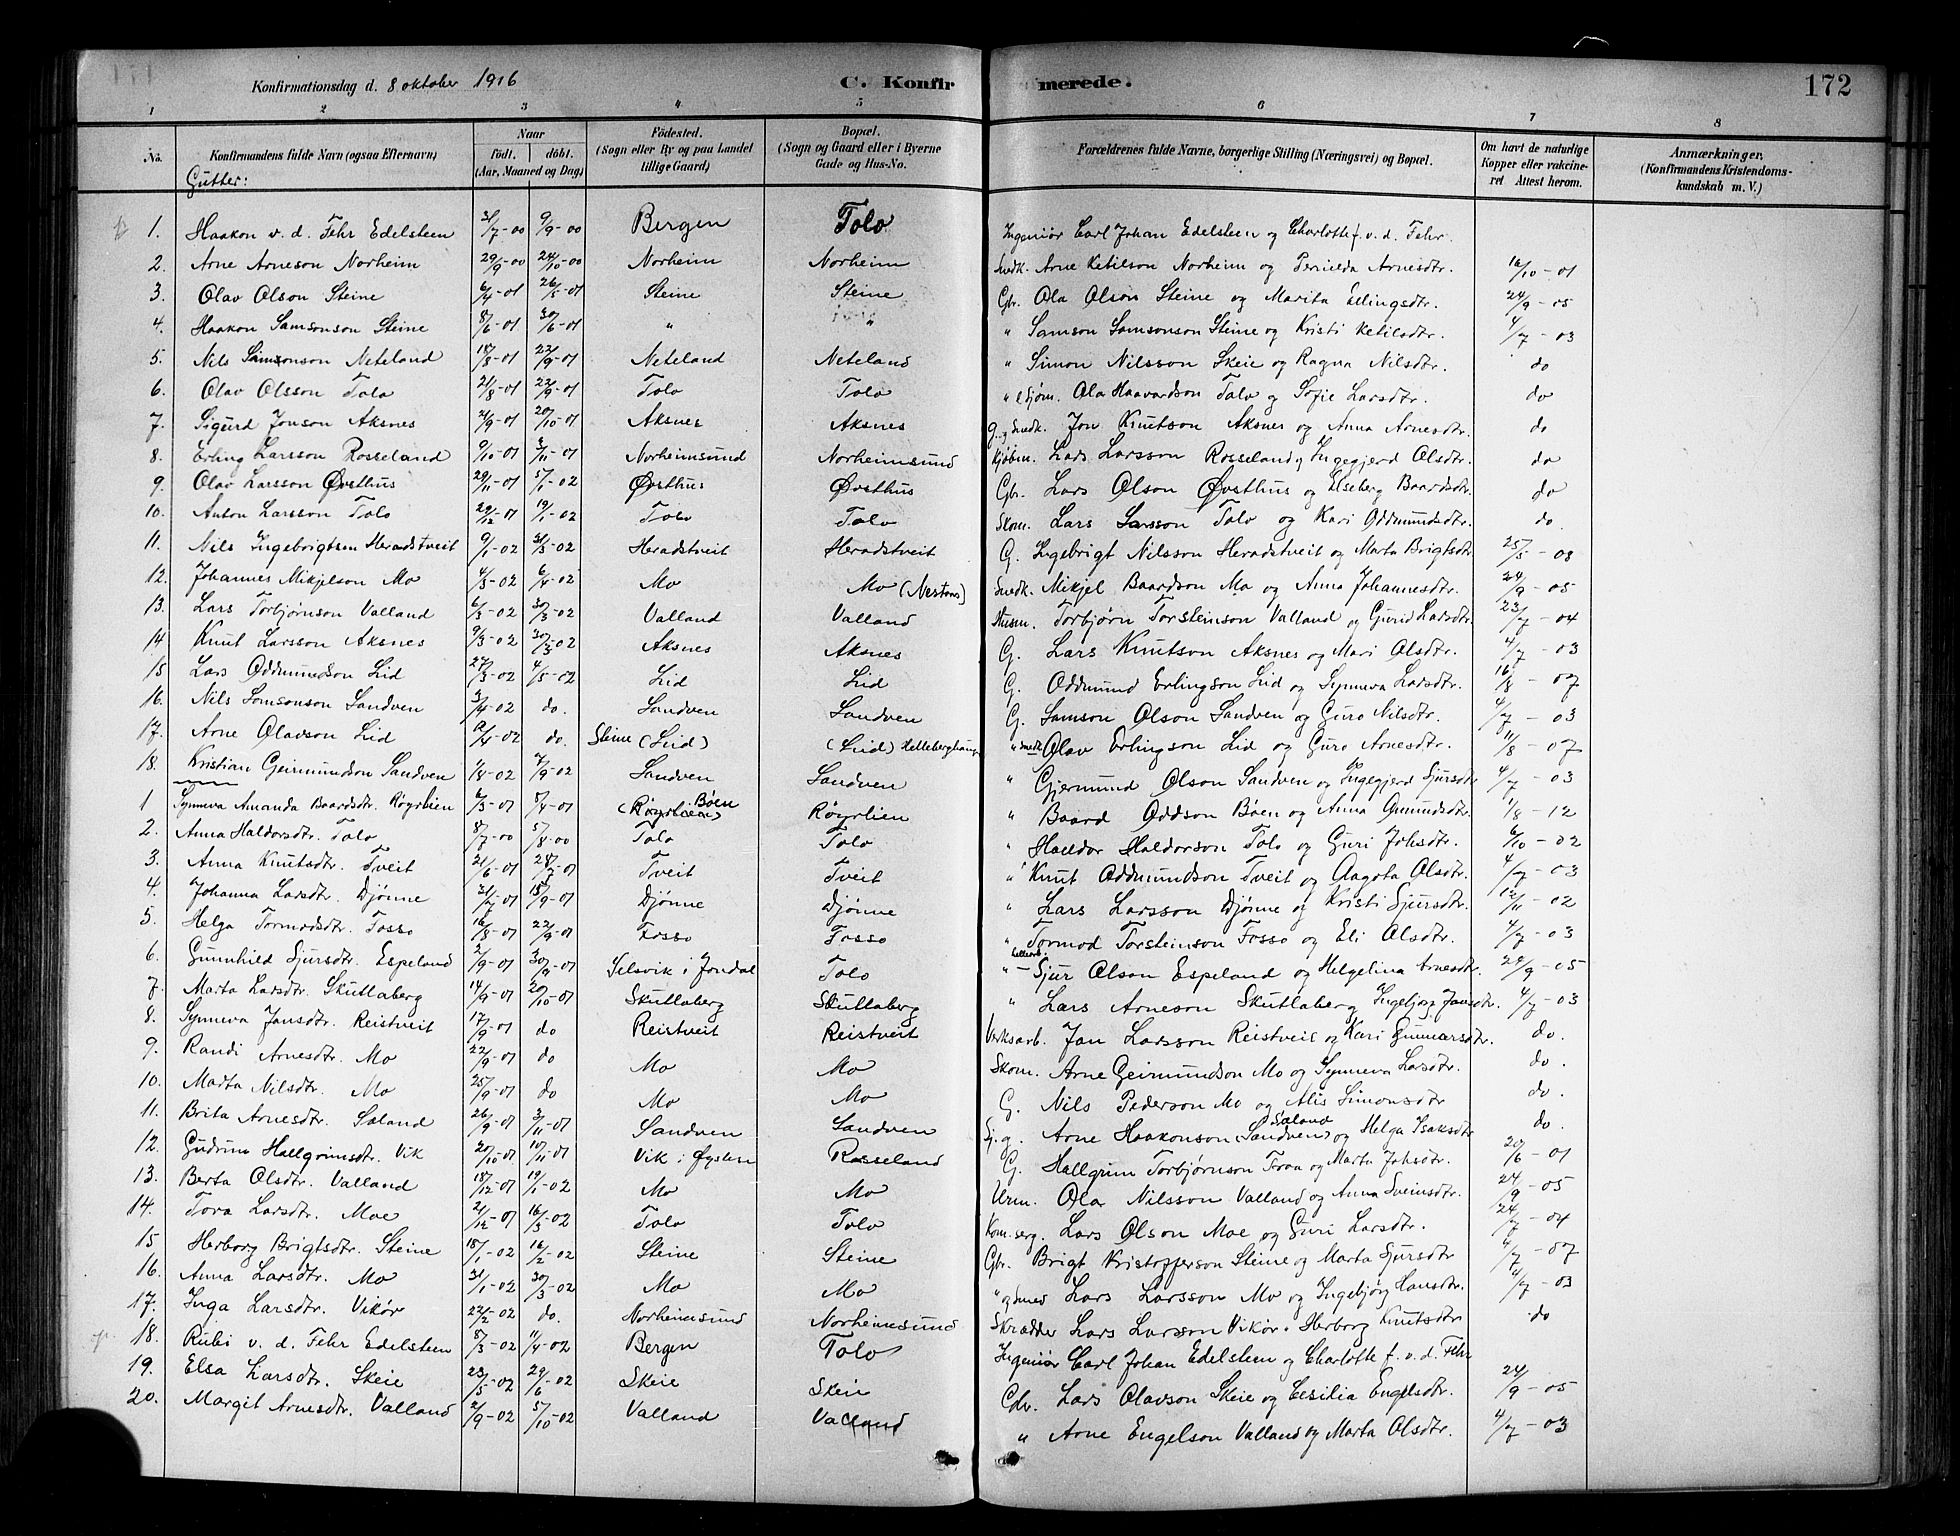 Konfirmationsdag d. 8 oktober 1916 C. Konfir merede. 172
1 2 3 4 5 6 7 8
No. Konfirmandens fulde Navn (ogsaa Efternavn) Naar födt. döbt. (Aar, Maaned og Dag) Födested. (Sogn eller By og paa Landet tillige Gaard) Bopæl. (Sogn og Gaard eller i Byerne Gade og Hus-No. Forældrenes fulde Navne, borgerlige Stilling (Næringsvei) og Bopæl. Om havt de naturlige Kopper eller vakcineret Attest herom. Anmærkninger, (Konfirmandens Kristendomskundskab m. V.)
Gutter:
1. Haakon v. d. Fehr Edelsteen 31/7-00 9/9-00 Bergen Tolo Ingeniör Carl Johan Edelsteen og Charlotte f. v. d. Fehr.
2. Arne Arneson Norheim 29/9-00 24/10-00 Norheim Norheim Snedk. Arne Ketilson Norheim og Pernilda Arnesdtr. 16/10-01
3. Olav Olson Steine 6/4-01 26/5-01 Steine Steine Gbr. Ola Olson Steine og Marita Ellingsdtr. 24/9-05
4. Haakon Samsonson Steine 8/6-01 30/6-01 " " " Samson Samsonson Steine og Kristi Ketilsdtr. 4/7-03
5. Nils Samsonson Neteland 18/8-01 22/9-01 Neteland Neteland " Simon Nilsson Skeie og Ragna Nilsdtr. do
6. Olav Olsson Tolo 21/8-01 22/9-01 Tolo Tolo " Ola Haavardson Tolo og Sofie Larsdtr. do
7. Sigurd Jonson Aksnes 21/9-01 20/10-01 Aksnes Aksnes G. og Snedk. Jon Knutson Aksnes og Anna Arnesdtr. do
8. Erling Larsson Rosseland 9/10-01 3/11-01 Norheimsund Norheimsund Kjöbm. Lars Larsson Rosseland og Ingegjerd Olsdtr. do
9. Olav Larsson Øvsthus 29/11-01 5/1-02 Øvsthus Øvsthus Gbr. Lars Olson Øvsthus og Elseberg Baardsdtr. do
10. Anton Larsson Tolo 29/12-01 19/1-02 Tolo Tolo Skom. Lars Larsson Tolo og Kari Oddmundsdtr. do.
11. Nils Ingebrigtsen Heradstveit 9/1-02 31/3-02 Heradstveit Heradstveit G. Ingebrigt Nilsson Heradstveit og Marta Brigtsdtr 25/5-03
12. Johannes Mikjelson Mo 4/3-02 6/4-02 Mo Mo (Nestoms) Snedk. Mikjel Baardson Mo og Anna Johannesdtr. 24/9-05
13. Lars Torbjørnson Valland 6/3-02 30/3-02 Valland Valland Husm. Torbjørn Torsteinson Valland og Gurid Larsdtr. 23/7-04
14 Knut Larsson Aksnes 9/3-02 30/3-02 Aksnes Aksnes G. Lars Knutson Aksnes og Mari Olsdtr. 4/7-03
15 Lars Oddmundson Lid 27/3-02 4/5-02 Lid Lid G. Oddmund Erlingson Lid og Synneva Larsdtr. 16/8-07
16. Nils Samsonson Sandven 3/4-02 do. Sandven Sandven G. Samson Olson Sandven og Guro Nilsdtr. 4/7-03
17. Arne Olavson Lid 9/4-02 do. Steine (Lid) (Lid) Helleberghaugen " Snedk Olav Erlingson Lid og Guro Arnesdtr. 11/8-07
18. Kristian Geirmundson Sandven 1/8-02 7/9-02 Sandven Sandven " Gjermund Olson Sandven og Ingegjerd Sjursdtr 4/7-03
1 Synneva Amanda Baardsdtr. Røyrlien 6/3-01 8/4-01 (Røyrlien) Bøen Røyrlien " Baard Oddson Bøen og Anna Amundsdtr. 1/8-12
2. Anna Haldorsdtr. Tolo 8/7-00 5/8-00 Tolo Tolo " Haldor Haldorson Tolo og Guri Johsdtr. 6/10-02
3. Anna Knutsdtr. Tveit 21/6-01 28/7-01 Tveit Tveit " Knut Oddmundson Tveit og Aagota Olsdtr. 4/7-03
4. Johanna Larsdtr. Djönne 31/7-01 15/9-01 Djönne Djönne " Lars Larsson Djönne og Kristi Sjursdtr. 12/11-02
5. Helga Tormodsdtr. Fosso 16/8-01 22/9-01 Fosso Fosso " Tormod Torsteinson Fosso og Eli Olsdtr. 4/7-03
6. Gunnhild Sjursdtr. Espeland 2/9-01 30/9-01 Selsvik i Jondal Tolo " Sjur Olson Espeland og Helgelina Arnesdtr. 24/9-05
7. Marta Larsdtr. Skutlaberg 14/9-01 20/10-01 Skutlaberg Skutlaberg " Lars Arneson Skutlaberg Ingebjørg Jansdtr. 4/7-03
8. Synneva Jansdtr. Reistveit 17/9-01 do Reistveit Reistveit Verksarb. Jan Larsson Reistveit og Kari Gunnarsdtr. do.
9. Randi Arnesdtr. Mo 22/9-01 do Mo Mo Skom. Arne Geirmundson Mo og Synneva Larsdtr. do.
10. Marta Nilsdtr. Mo 25/9-01 do Mo Mo G. Nils Pederson Mo og Alis Simonsdtr do.
11. Brita Arnesdtr. Saland 26/9-01 3/11-01 Sandven Sandven Arne Haakonson (Sandven) Saland og Helga Isaksdtr do.
12. Gudrun Hallgrimsdtr. Vik 20/10-01 10/11-01 Vik i Øysten Rosseland G. Hallgrim Torbjørnson Troa og Marta Johsdtr. 20/6-01
13. Berta Olsdtr. Valland 18/12-01 19/1-02 Mo Mo Urm. Ola Nilsson Valland og Anna Sveinsdtr. 24/9-05
14. Tora Larsdtr. Moe 21/12-01 16/3-02 Tolo Tolo Kom.serg. Lars Olson Moe og Guri Larsdtr. 24/7-04
15 Herborg Brigtsdtr. Steine 18/1-02 16/2-02 Steine Steine Gbr. Brigt Kristofferson Steine og Marta Sjursdtr 4/7-07
16. Anna Larsdtr. Mo 31/1-02 30/3-02 Mo Mo " og Smed Lars Larsson Mo og Ingebjørg Hansdtr. 4/7-03
17. Inga Larsdtr. Vikör 22/2-02 do. Norheimsund Norheimsund Skrædder Lars Larsson Vikör. Herborg Knutsdtr do
18. Rubi v. d. Fehr Edelsteen 8/3-02 11/4-02 Bergen Tolo Ingeniör Carl Johan Edelsteen og Charlotte f. v. d. Fehr
19. Elsa Larsdtr. Skeie 23/5-02 29/6-02 Skeie Skeie Gbr. Lars Olavson Skeie og Cesilia Engelsdtr. 24/9-05
20. Margit Arnesdtr. Valland 2/9-02 5/10-02 Valland Valland " Arne Engelson Valland og Marta Olsdtr. 4/7-03